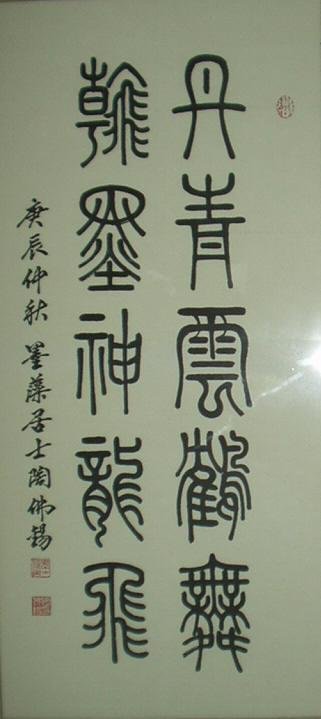 丹青雲鶴舞
翰墨神龍飛
庚辰仲秋 墨藻居士陶佛錫